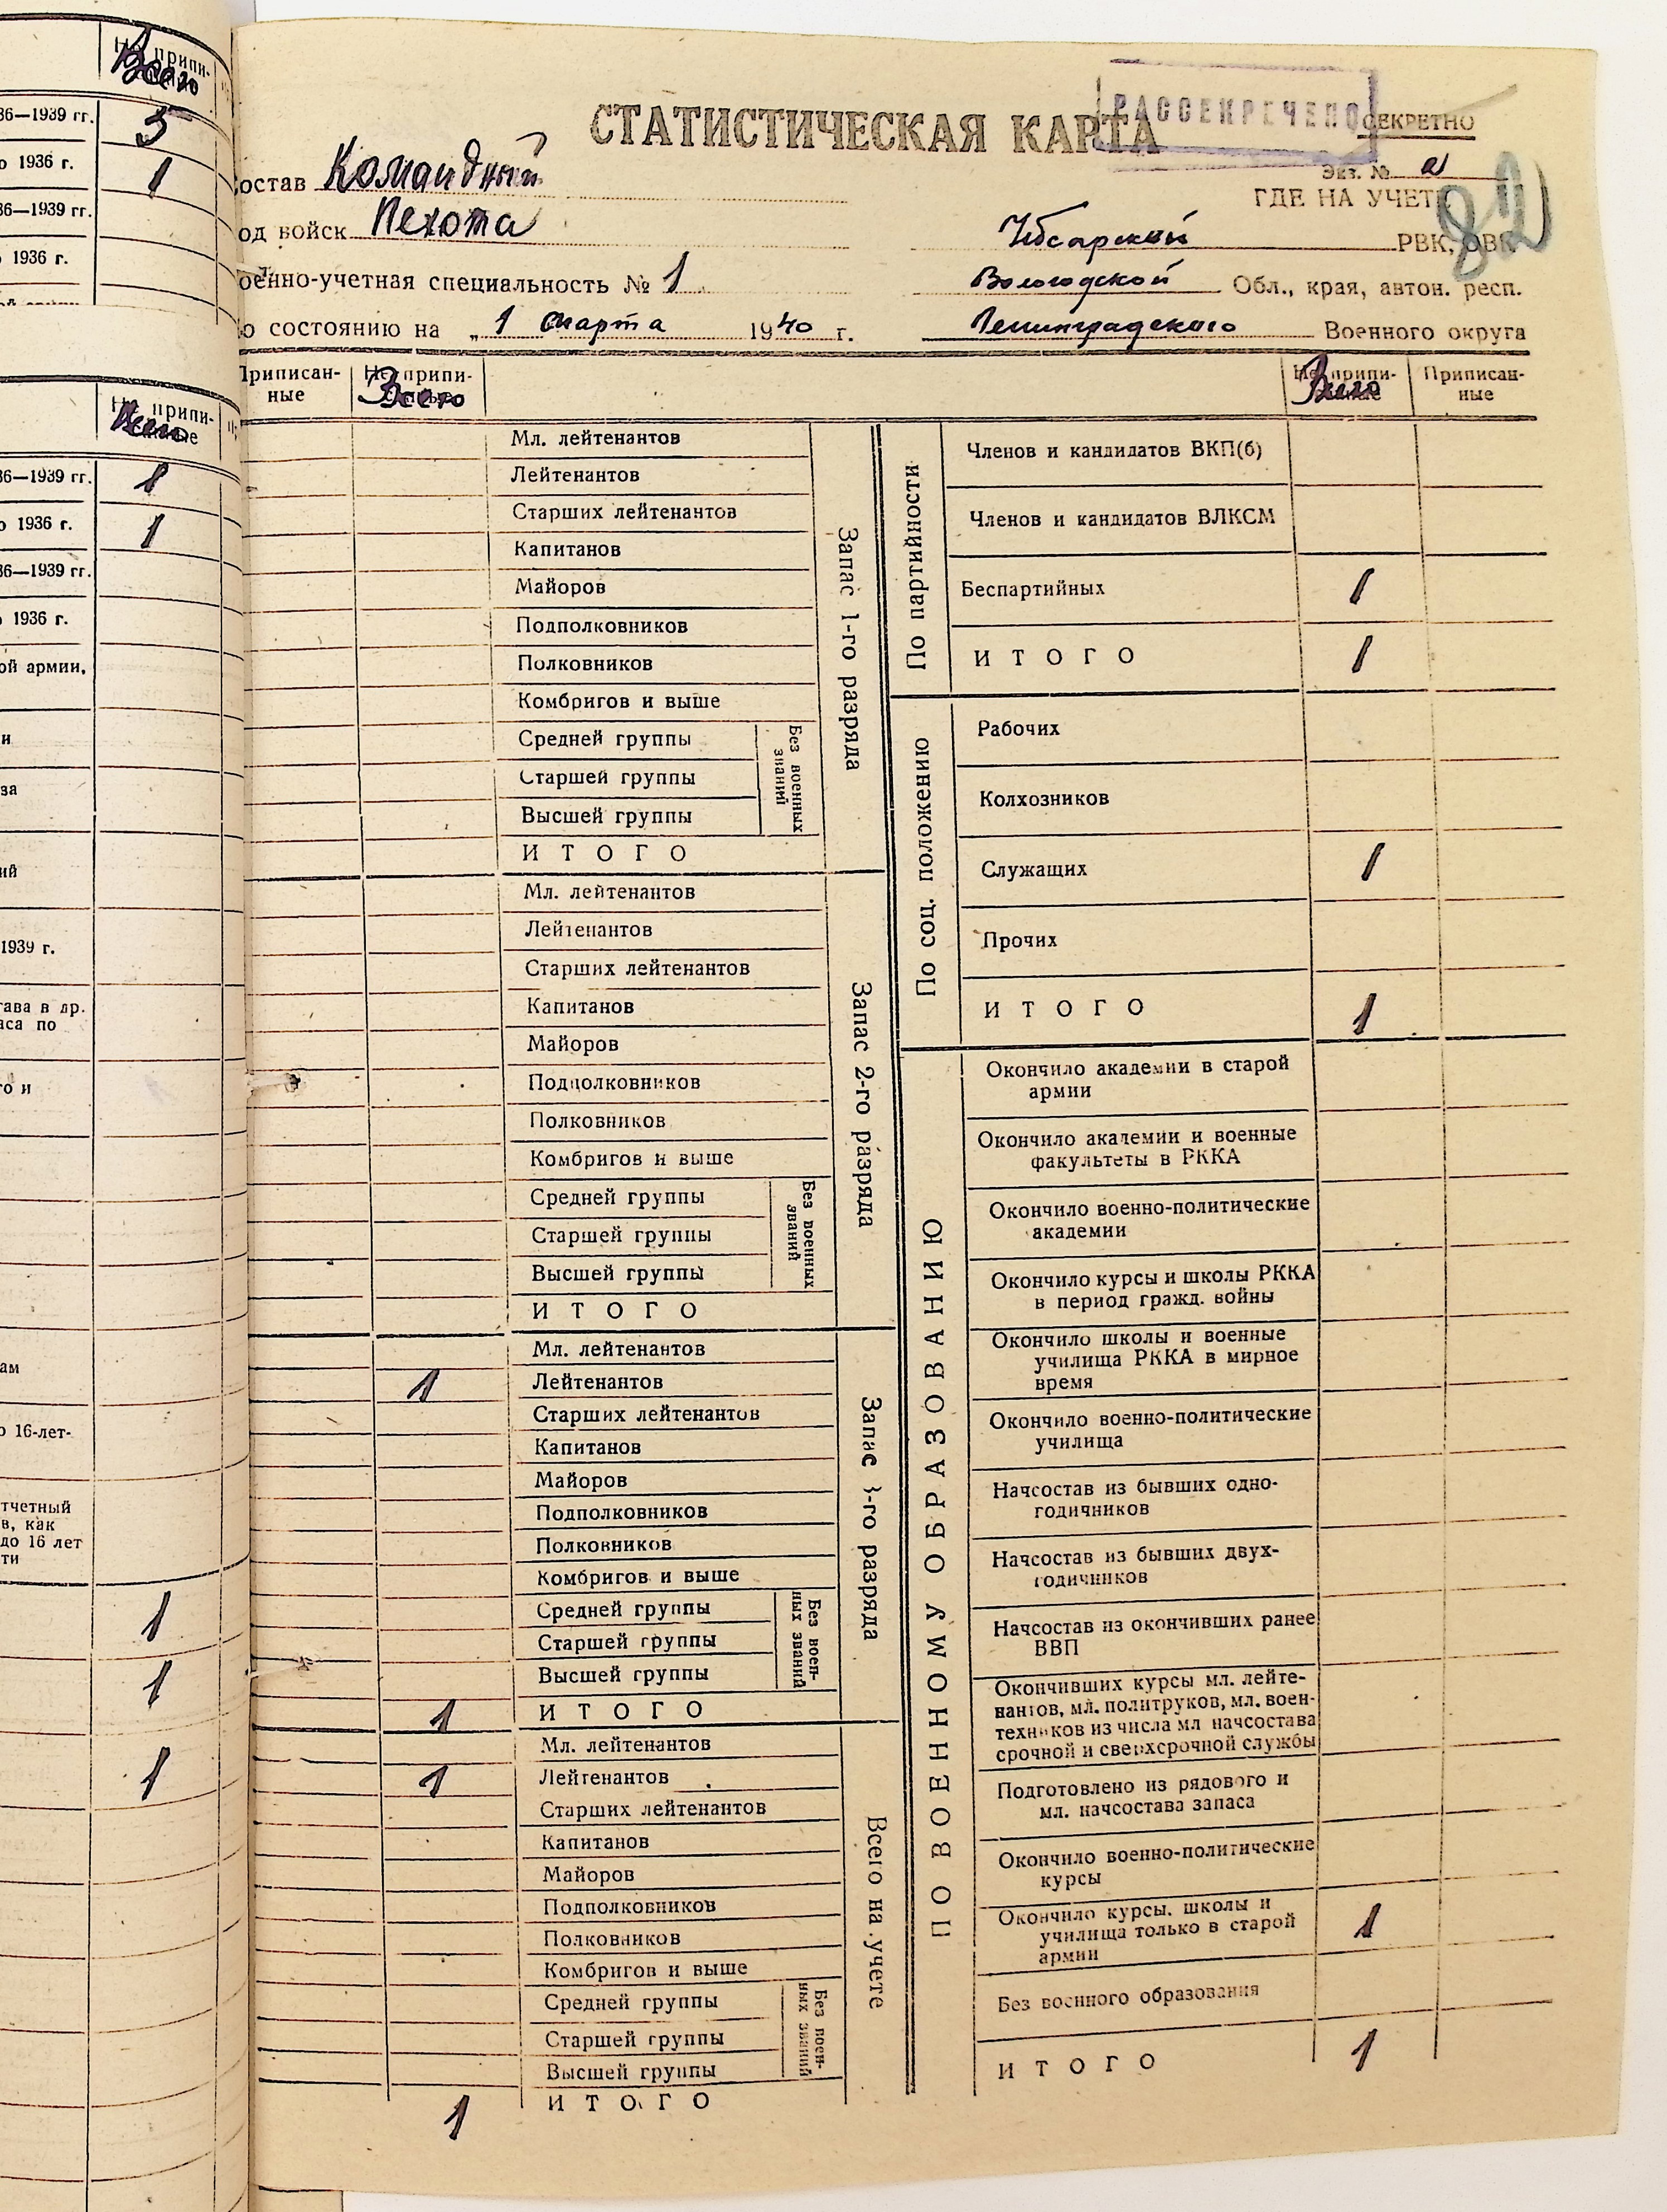 Всего
36—1939 гг. 5
о 1936 г. 1
36—1939 гг.
о 1936 г.
Всего
36—1939 гг. 1
о 1936 г. 1
36—1939 гг.
о 1936 г.
ой армии,
и
за
ий
1939 г.
тава в др.
аса по
го и
ам
о 16-лет-
тчетный
в, как
до 16 лет
ти
1
1
1
РАССЕКРЕЧЕНО
СТАТИСТИЧЕСКАЯ КАРТА
СЕКРЕТНО
Экз. № 2
82
остав Командный
ГДЕ НА УЧЕТЕ
од войск Пехота
Чебсарский РВК, ГВК
оенно-учетная специальность № 1
Вологодской Обл., края, автон. респ.
о состоянию на „ 1 марта 1940 г.
Ленинградского Военного округа
Приписан-
ные
Не припи-
Всего
Не припи-
Всего
Приписан-
ные
Запас 1-го разряда
Мл. лейтенантов
Лейтенантов
Старших лейтенантов
Капитанов
Майоров
Подполковников
Полковников
Комбригов и выше
Без военных
званий
Средней группы
Старшей группы
Высшей группы
ИТОГО
Запас 2-го разряда
Мл. лейтенантов
Лейтенантов
Старших лейтенантов
Капитанов
Майоров
Подполковников
Полковников
Комбригов и выше
Без военных
званий
Средней группы
Старшей группы
Высшей группы
ИТОГО
Запас 3-го разряда
Мл. лейтенантов
1 Лейтенантов
Старших лейтенантов
Капитанов
Майоров
Подполковников
Полковников
Комбригов и выше
Без воен-
ных званий
Средней группы
Старшей группы
Высшей группы
1 ИТОГО
Всего на учете
Мл. лейтенантов
1 Лейтенантов
Старших лейтенантов
Капитанов
Майоров
Подполковников
Полковников
Комбригов и выше
Без воен-
ных званий
Средней группы
Старшей группы
Высшей группы
1 ИТОГО
По партийности
Членов и кандидатов ВКП(б)
Членов и кандидатов ВЛКСМ
Беспартийных 1
ИТОГО 1
По соц. положению
Рабочих
Колхозников
Служащих 1
Прочих
ИТОГО 1
ПО ВОЕННОМУ ОБРАЗОВАНИЮ
Окончило академии в старой
армии
Окончило академии и военные
факультеты в РККА
Окончило военно-политические
академии
Окончило курсы и школы РККА
в период гражд. войны
Окончило школы и военные
училища РККА в мирное
время
Окончило военно-политические
училища
Начсостав из бывших одно-
годичников
Начсостав из бывших двух-
годичников
Начсостав из окончивших ранее
ВВП
Окончивших курсы мл. лейте-
нантов, мл. политруков, мл. воен-
техников из числа мл начсостава
срочной и сверхсрочной службы
Подготовлено из рядового и
мл. начсостава запаса
Окончило военно-политические
курсы
Окончило курсы, школы и
училища только в старой 1
армии
Без военного образования
ИТОГО 1